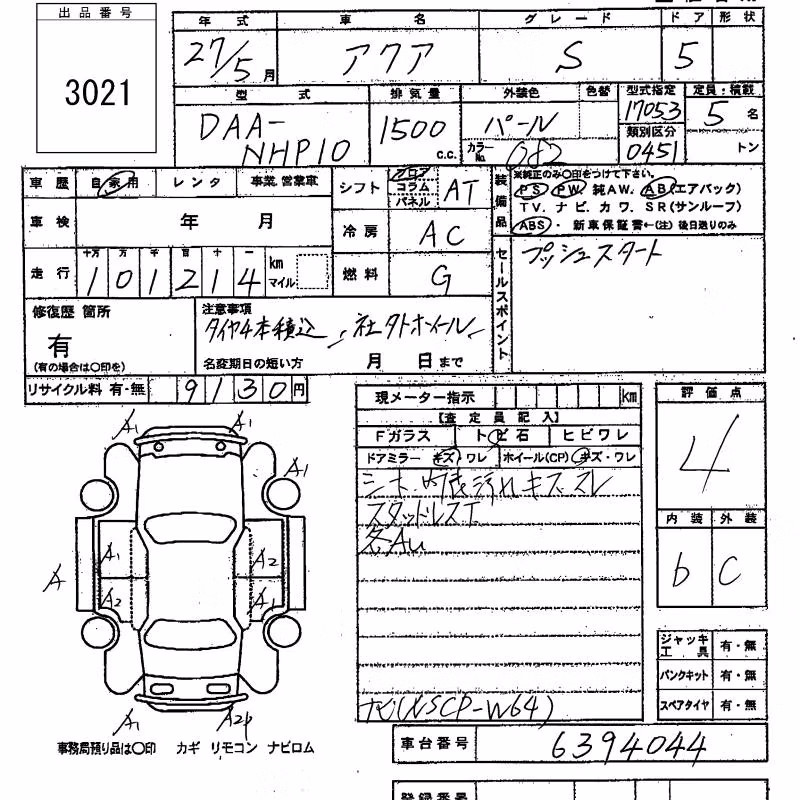 出品番号
3021
年式 車名 グレード ドア 形状
27/5月 アクア S 5
型式 排気量 外装色 色替 型式指定 定員・積載
DAA-NHP10 1500 C.C. パール カラーNo. 082 17053 5 名
類別区分
0451 トン
車歴 自家用 レンタ 事業.営業車 シフト フロア コラム パネル AT
装備品 ※純正のみ○印をつけて下さい。
PS PW 純AW. AB(エアバック)
TV. ナビ. カワ. SR(サンルーフ)
ABS・ 新車保証書←(注) 後日送りのみ
車検 年 月 冷房 AC
セールスポイント プッシュスタート
走行 十万 万 千 百 十 一
101214 km マイル 燃料 G
修復歴 箇所
有
(有の場合は○印を)
注意事項
タイヤ4本積込 社外ホイール
名変期日の短い方 月 日まで
リサイクル料 有・無 9130円
現メーター指示 km
【査定員記入】
Fガラス トビ石 ヒビワレ
ドアミラー キズ・ワレ ホイール(CP) キズ・ワレ
シート 内装汚れキズスレ
スタッドレスT
各AU
ナビ(NSCP-W64)
評価点
4
内装 外装
b C
ジャッキ工具 有・無
パンクキット 有・無
スペアタイヤ 有・無
A1 A1
A1
A1 A2
A
A2 A1
A1 A2P
事務局預り品は○印 カギ リモコン ナビロム
車台番号 6394044
登録番号